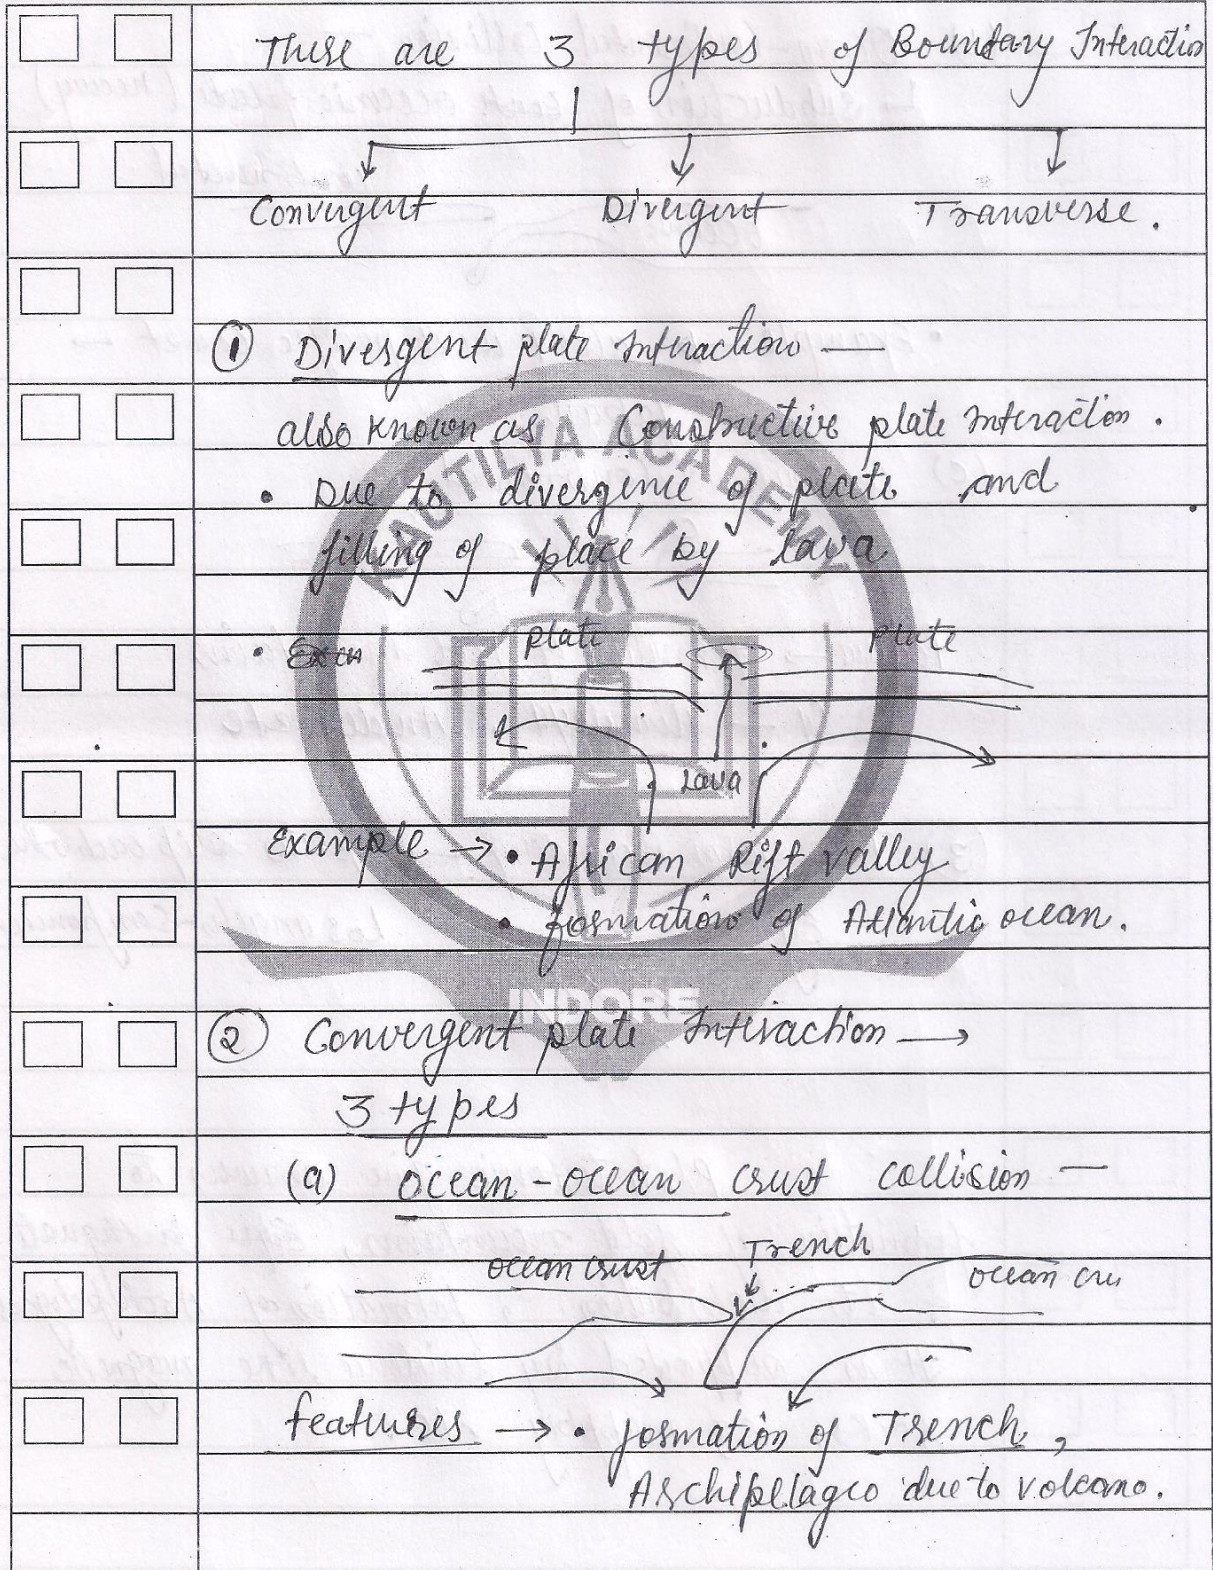 There are 3 types of Boundary Interaction
Convergent Divergent Transverse.
① Divergent plate Interaction —
also known as Constructive plate Interaction.
• Due to divergence of plate and
filling of place by lava
• plate plate
Lava
Example → • African Rift valley
• formation of Atlantic ocean.
② Convergent plate Interaction →
3 types
(a) ocean-ocean crust collision —
Trench
ocean crust ocean cru
features → • formation of Trench,
Archipelagco due to volcano.
KAUTILYA ACADEMY
INDORE